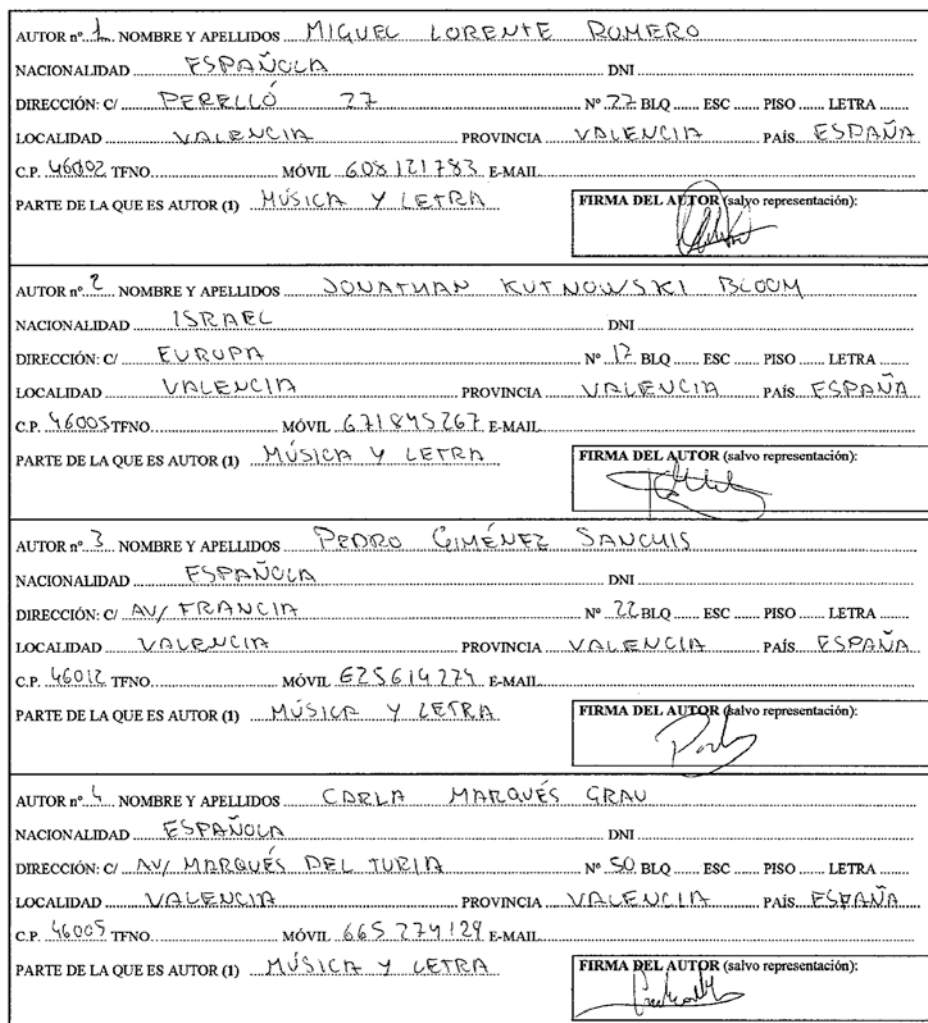 AUTOR nº 1 NOMBRE Y APELLIDOS MIGUEL LORENTE ROMERO
NACIONALIDAD ESPAÑOLA DNI
DIRECCIÓN: C/ PERELLÓ 27 Nº 27 BLQ ESC PISO LETRA
LOCALIDAD VALENCIA PROVINCIA VALENCIA PAÍS ESPAÑA
C.P. 46002 TFNO. MÓVIL 608121783 E-MAIL
PARTE DE LA QUE ES AUTOR (1) MÚSICA Y LETRA
FIRMA DEL AUTOR (salvo representación):
AUTOR nº 2 NOMBRE Y APELLIDOS JONATHAN KUTNOWSKI BLOOM
NACIONALIDAD ISRAEL DNI
DIRECCIÓN: C/ EUROPA Nº 17 BLQ ESC PISO LETRA
LOCALIDAD VALENCIA PROVINCIA VALENCIA PAÍS ESPAÑA
C.P. 46005 TFNO. MÓVIL 671845267 E-MAIL
PARTE DE LA QUE ES AUTOR (1) MÚSICA Y LETRA
FIRMA DEL AUTOR (salvo representación):
AUTOR nº 3 NOMBRE Y APELLIDOS PEDRO GIMÉNEZ SANCHIS
NACIONALIDAD ESPAÑOLA DNI
DIRECCIÓN: C/ AV/ FRANCIA Nº 22 BLQ ESC PISO LETRA
LOCALIDAD VALENCIA PROVINCIA VALENCIA PAÍS ESPAÑA
C.P. 46012 TFNO. MÓVIL 625614274 E-MAIL
PARTE DE LA QUE ES AUTOR (1) MÚSICA Y LETRA
FIRMA DEL AUTOR (salvo representación):
AUTOR nº 4 NOMBRE Y APELLIDOS CARLA MARQUÉS GRAU
NACIONALIDAD ESPAÑOLA DNI
DIRECCIÓN: C/ AV/ MARQUÉS DEL TURIA Nº 50 BLQ ESC PISO LETRA
LOCALIDAD VALENCIA PROVINCIA VALENCIA PAÍS ESPAÑA
C.P. 46005 TFNO. MÓVIL 665 274129 E-MAIL
PARTE DE LA QUE ES AUTOR (1) MÚSICA Y LETRA
FIRMA DEL AUTOR (salvo representación):